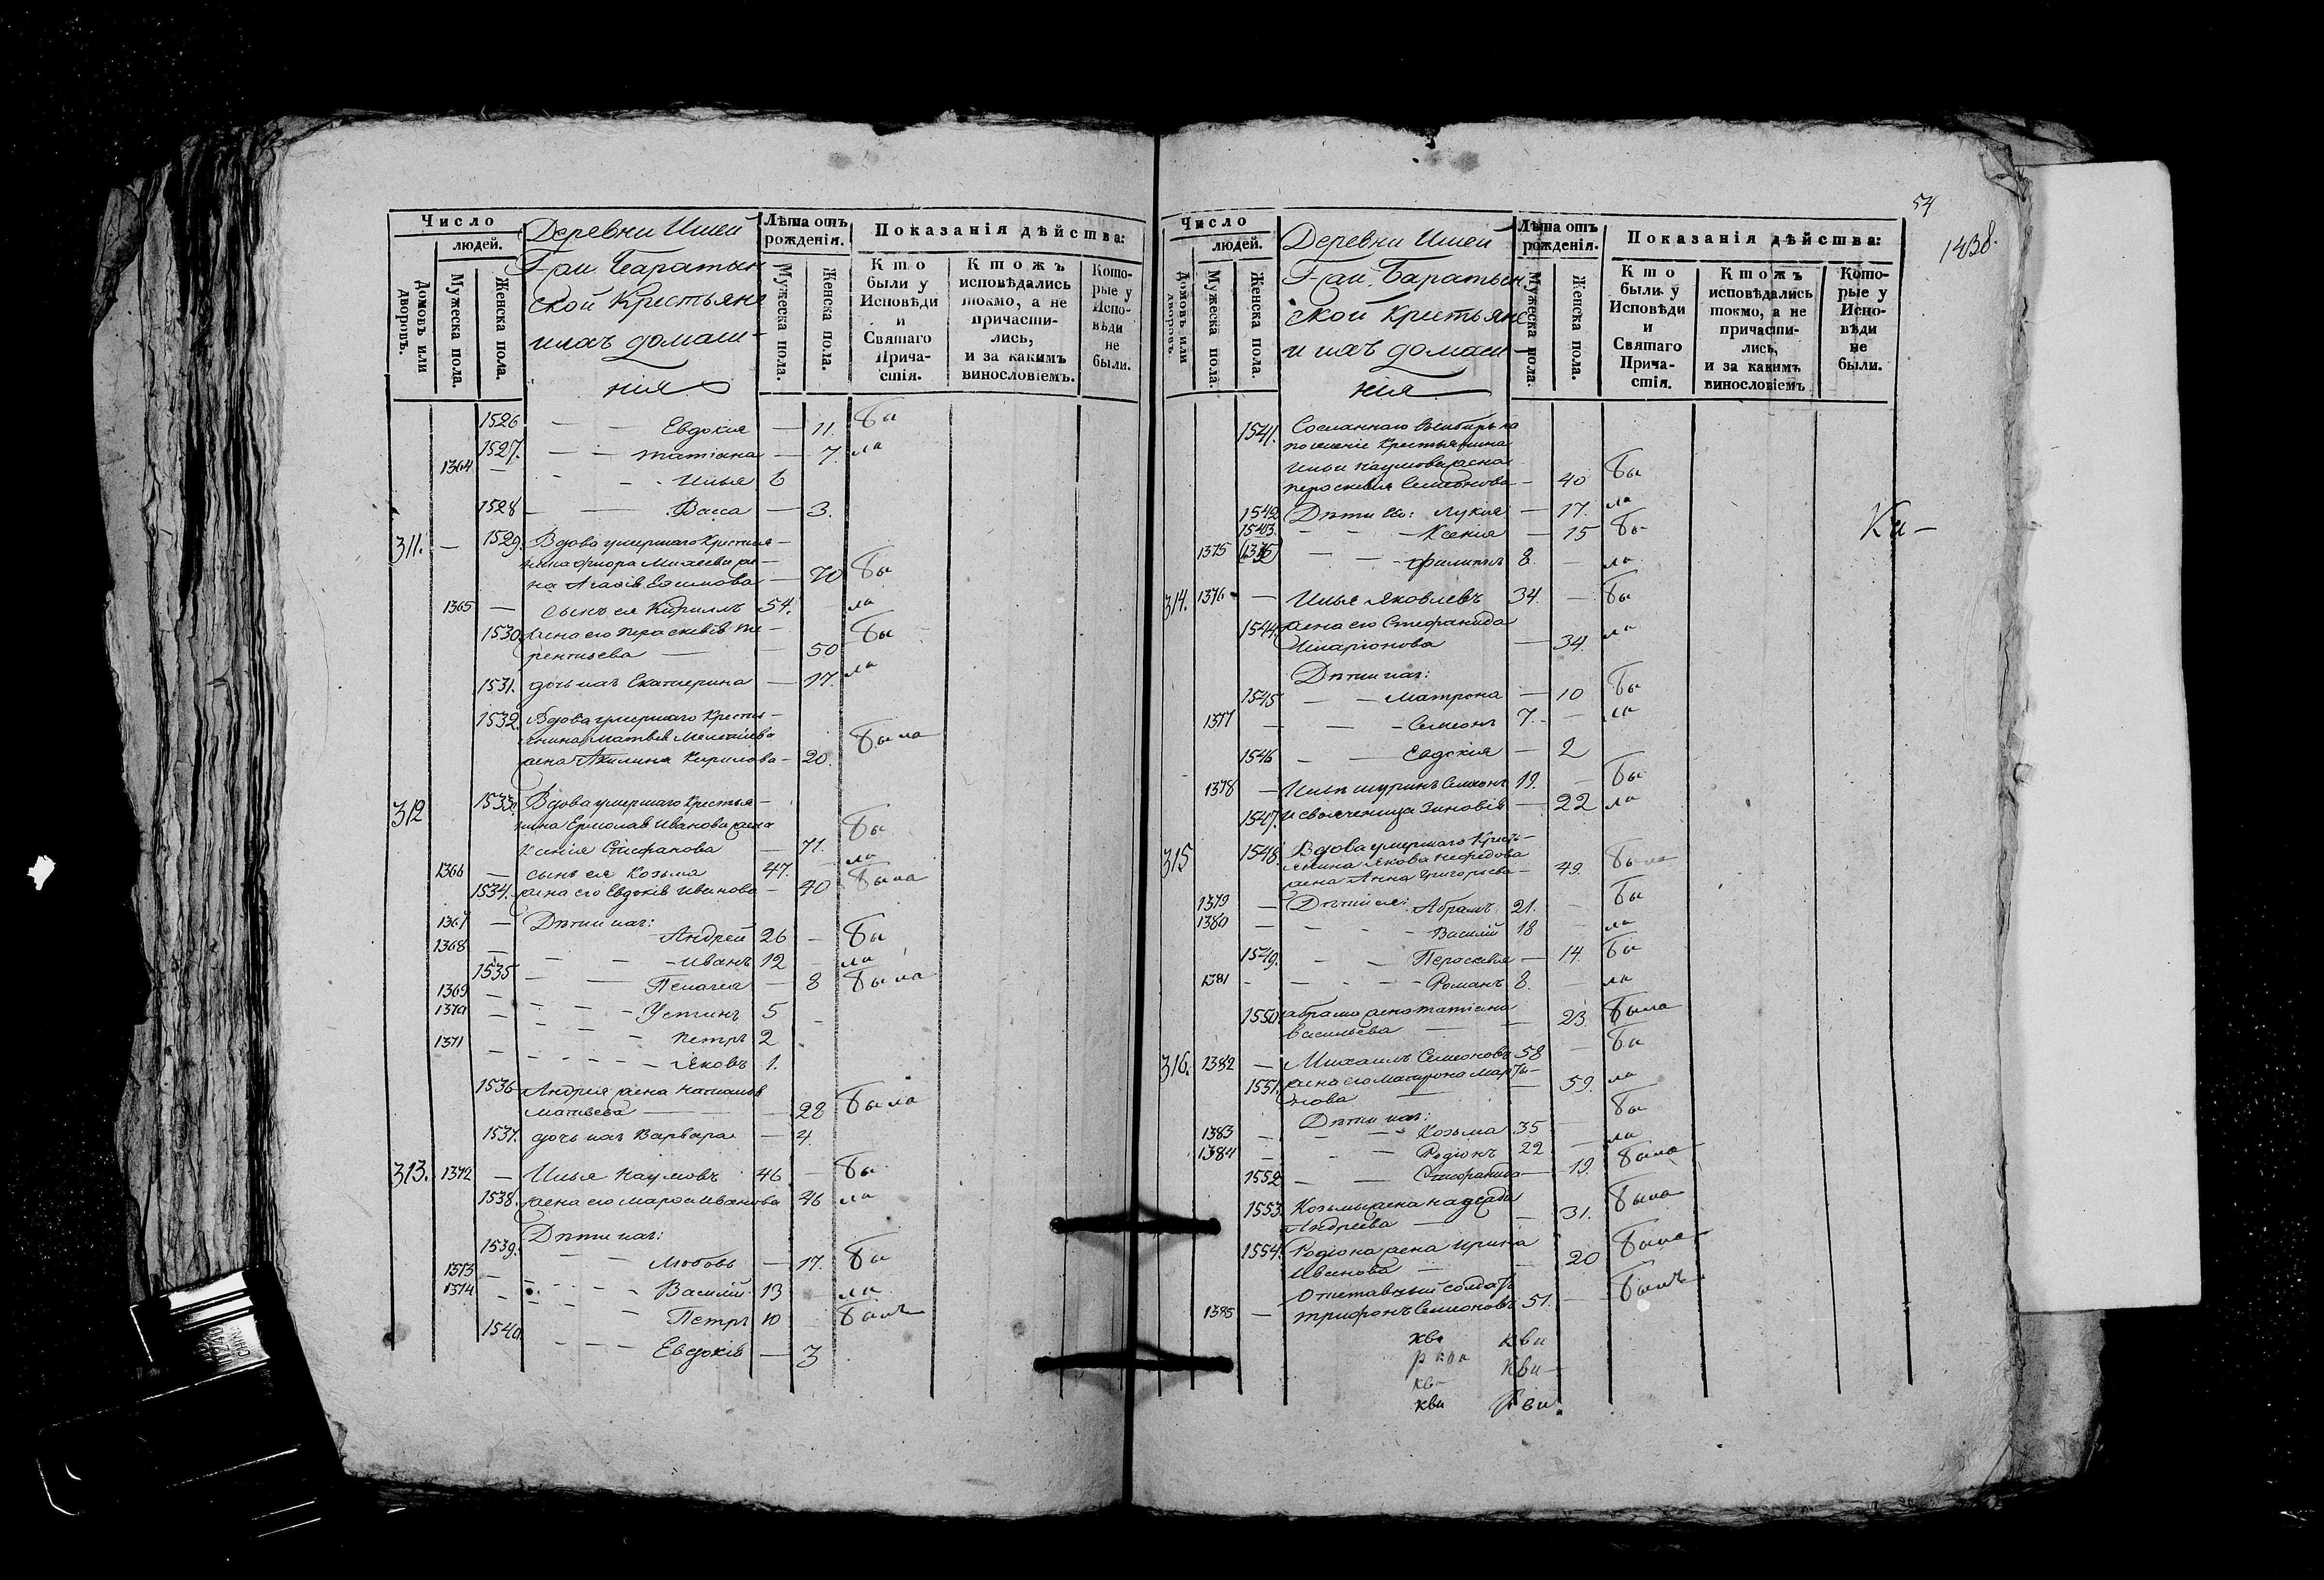 Число
людей.
Домовъ или дворовъ.
Мужеска пола.
Женска пола.
Деревни
Баратын
ской Крестьяне
ихъ домаш-
нія
Лѣта отъ рожденія.
Мужеска пола.
Женска пола.
Показанія дѣйства:
Кто были у Исповѣди и Святаго Прича-стія.
Ктожъ исповѣдались токмо, а не причасти-лись, и за какимъ винословіемъ.
Кото-рые у Испо-вѣди не были.
1526 — — Евдокія — 11. бы
1527. — — татіана — 7. ла
1364 — — — Илья 6
1528 — — Васса — 3.
311. — 1529. Вдова умершаго Крестья-
нина Михеева же-
на Агафія Ефимова — 70 бы
1365 — сынъ ея Кирилъ 54. — ла
1530. жена его Параскевія Те-
рентьева — — 50 бы
1531. дочь ихъ Екатерина — 17. ла
1532. Вдова умершаго Кресть-
янина Матвея
жена Акилина Кирилова — 20. была
312 1533. Вдова умершаго Крестья-
нина Ермолая Иванова жена
Ксенія Стефанова — 71. бы
1366 — сынъ ея Козьма 47. — ла
1534. жена его Евдокія Иванова — 40 была
1367 — Дѣти ихъ:
Андрей 26 — бы
1368 — — — Иванъ 12 — ла
1535 — — Пелагея — 8 была
1369 — — — Устинъ 5 —
1370 — — — Петръ 2
1371 — — — Яковъ 1.
1536 Андрея жена Наталья
Матвеева — — 28 была
1537. дочь ихъ Варвара — 4.
313. 1372 — Илья Наумовъ 46 — бы
1538. жена его Марфа Иванова 46 ла
Дѣти ихъ:
1539. — — Любовь — 17. бы
1373 — — — Василій 13 — ла
1374 — — — Петръ 10 — былъ
1540. — — — Евдокія — 3
54
1438.
Число
людей.
Домовъ или дворовъ.
Мужеска пола.
Женска пола.
Деревни
Баратын
ской Крестьяне
и ихъ домаш-
нія
Лѣта отъ рожденія.
Мужеска пола.
Женска пола.
Показанія дѣйства:
Кто были у Исповѣди и Святаго Прича-стія.
Ктожъ исповѣдались токмо, а не причасти-лись, и за какимъ винословіемъ
Кото-рые у Испо-вѣди не были.
1541. Сосланнаго въ Сибирь на
поселеніе Крестьянина
Ильи Наумова жена
Пероскевія Семіонова — 40 бы
1542 Дѣти его: Лукія — 17. ла
1543. — — Ксенія — 15 бы
1375 — — Филипъ 8. — ла
314. 1376 — Илья Яковлевъ 34. — бы
1544. жена его Стефанида
Иларіонова — 34. ла
Дѣти ихъ:
1545 — — Матрона — 10 бы
1377 — — — Семіонъ 7. — ла
1546 — — Евдокія — 2
1378 — Ильи шуринъ Семіонъ 19. — бы
1547. и свояченица Зиновія — 22 ла
315 1548. Вдова умершаго Кресть-
янина Якова Нефедова
жена Анна Григорьева — 49. была
1379 — Дѣти ея: Абрамъ 21. — бы
1380 — — — Василій 18 — ла
1549. — — Пероскевія — 14. бы
1381 — — — Романъ 8. — ла
1550. Абрама жена татіана
Васильева — — 23. была
316. 1382 — Михаилъ Семіоновъ 58 — бы
1551. жена его Матрона Марты-
нова — — 59. ла
Дѣти ихъ:
1383 — — — Козьма 35 — бы
1384 — — — Родіонъ 22 — ла
1552 — — Стефанида — 19. была
1553. Козьмы жена надежда
Андреева — — 31. была
1554. Родіона жена Ирина
Иванова — — 20 была
Отставный солдатъ
1385 — трифонъ Семіоновъ 51. — былъ
кви кви
кви
кви